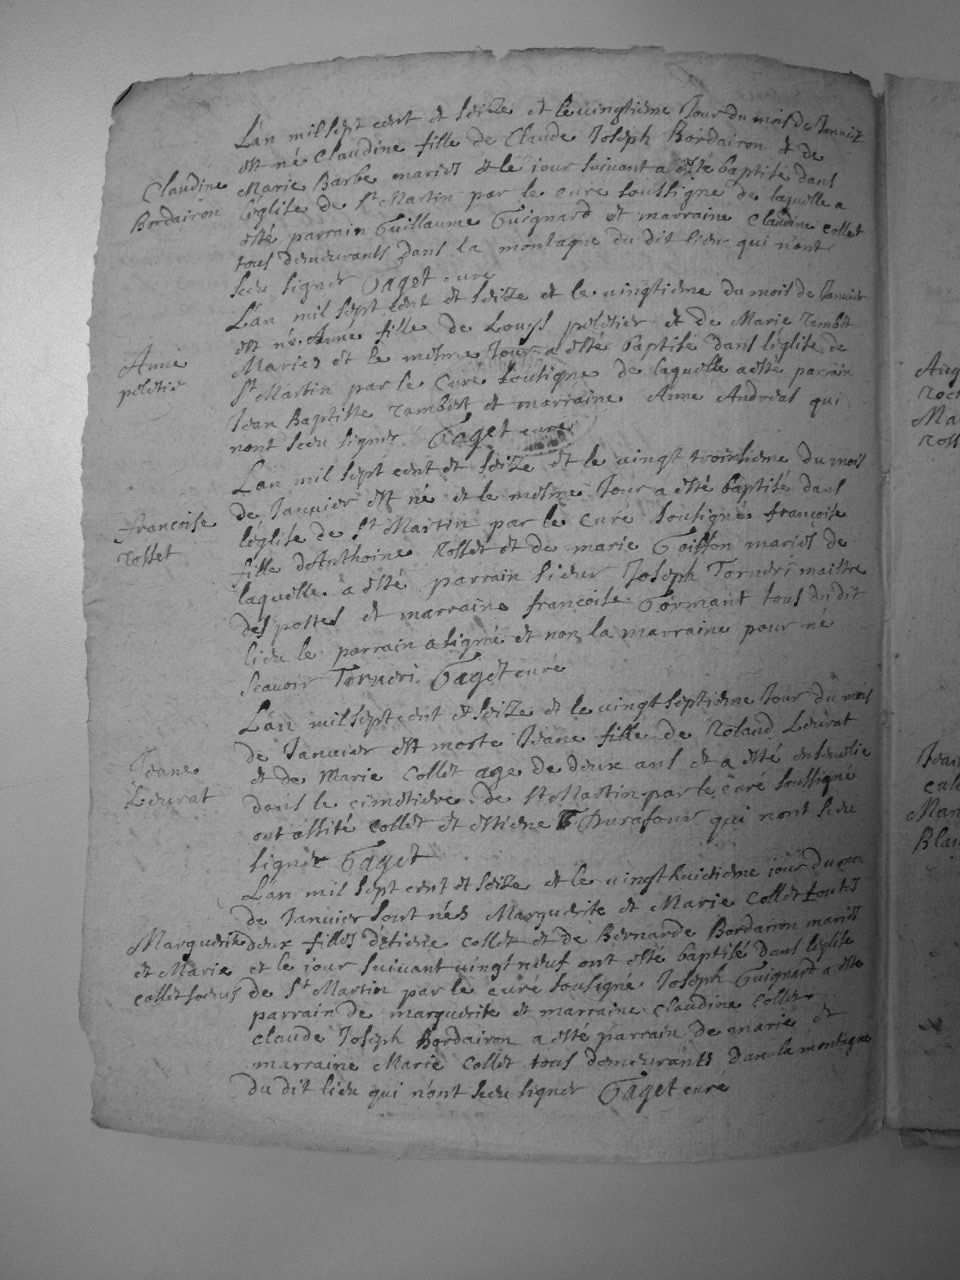 L'an mil sept cent et seize et le vingtieme Jour du mois de Janvier
est né Claudine fille de Claude Joseph Bordairon et de
Claudine
Marie Barbe mariés et le jour suivant a esté baptisé dans
Bordairon
l'église de St Martin par le cure soussigne de laquelle a
esté parrain Guillaume Guignard et marraine Claudine Collet
tous demeurants dans la montagne du dit lieu qui n'ont
sceu signer Gaget curé
L'an mil sept cent et seize et le vingtieme du mois de Janvier
est né Anne fille de Louys peletier et de Marie rambet
Anne
Mariés et le mesme Jour a esté baptisé dans l'église de
peletie
St Martin par le Cure soussigne de laquelle a esté parain
Jean Baptiste rambert et marraine Anne Andréas qui
nont sceu signer Gaget curé
L'an mil sept cent et seize et le vingt troisieme du mois
de Janvier est né et le mesme Jour a esté baptisé dans
francoise
l'église de St Martin par le cure soussigné françoise
rosset
fille d'Anthoine rosset et de marie Goiffon mariés de
laquelle a esté parrain sieur Joseph Torneri maistre
des postes et marraine françoise Gormant tous du dit
lieu le parrain a signé et non la marraine pour ne
scavoir Torneri Gaget curé
L'an mil sept cent et seize et le vingt septieme Jour du mois
de Janvier est morte Jeane fille de Roland Leurat
Jeane
et de Marie Collet age de deux ans et a esté ensevelie
Leurat
dans le cimetiere de St Martin par le curé soussigné
ont assité collet et estiene Durafour qui n'ont sceu
signer Gaget
L'an mil sept cent et seize et le vingt huictieme jour du mois
de Janvier sont nés Marguerite et Marie Collet toutes
Marguerite
deux filles d'etiene collet et de Bernarde Bordairon mariés
et Marie
et le jour suivant vingt neuf ont esté baptisé dans l'église
collet soeurs
de St Martin par le cure soussigné Joseph Guignard a esté
parrain de marguerite et marraine Claudine Collet
claude Joseph Bordairon a esté parrain de marie et
marraine Marie Collet tous demeurants dans la montagne
du dit lieu qui n'ont sceu signer Gaget curé